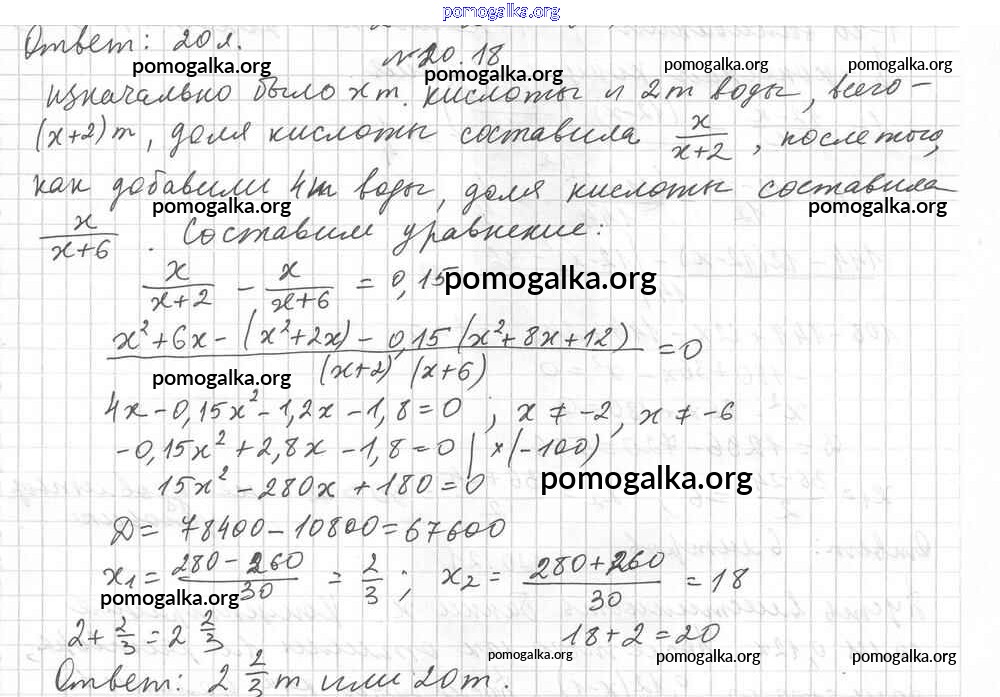 pomogalka.org
Ответ: 20 л.
№20.18
pomogalka.org pomogalka.org pomogalka.org pomogalka.org
изначально было x т. кислоты и 2 т воды, всего –
(x+2) т, доля кислоты составила x/(x+2), после того,
как добавили 4 т воды, доля кислоты составила
pomogalka.org pomogalka.org
x/(x+6). Составим уравнение:
x/(x+2) - x/(x+6) = 0,15
pomogalka.org
(x²+6x-(x²+2x)-0,15(x²+8x+12))/((x+2)(x+6)) = 0
pomogalka.org
4x-0,15x²-1,2x-1,8=0 ; x ≠ -2, x ≠ -6
-0,15x²+2,8x-1,8=0 | ×(-100)
pomogalka.org
15x²-280x+180=0
Д= 78400-10800=67600
x₁ = (280-260)/30 = 2/3 ; x₂ = (280+260)/30 = 18
pomogalka.org
2+2/3=2 2/3 18+2=20
pomogalka.org pomogalka.org pomogalka.org
Ответ: 2 2/3 т или 20 т.